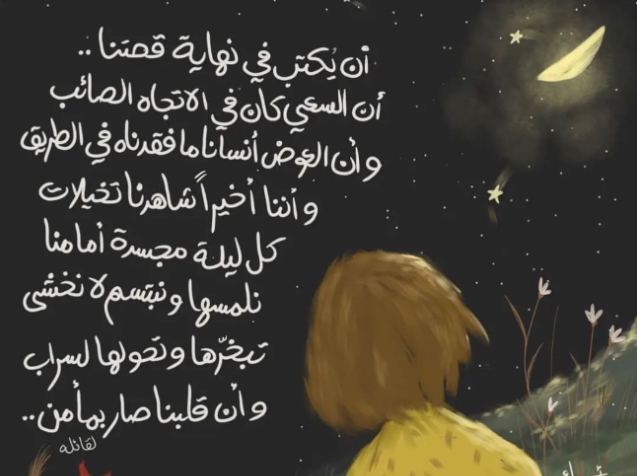 أن يُكتب في نهاية قصتنا ..
أن السعي كان في الاتجاه الصائب
وأن العوض أنسانا ما فقدناه في الطريق
وأننا أخيراً شاهدنا تخيلات
كل ليلة مجسدة أمامنا
نلمسها ونبتسم لا نخشى
تبخّرها وتحولها لسراب
وأن قلبنا صار بمأمن ..
لقائله